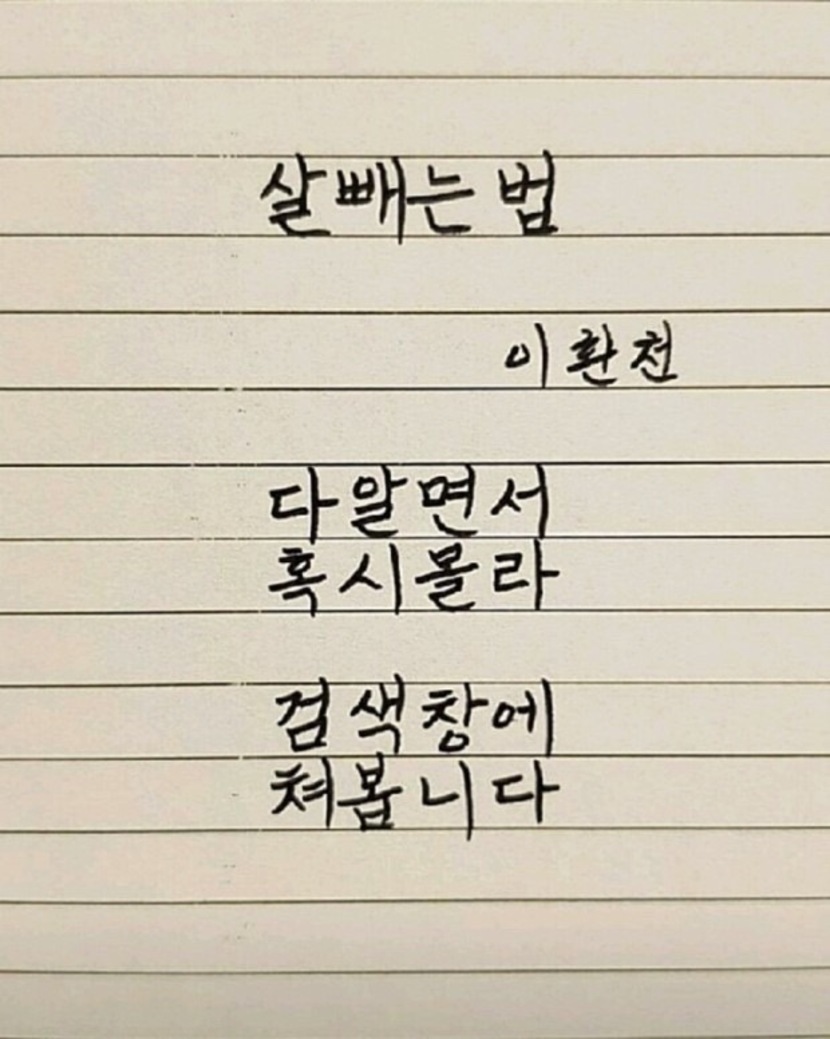 살빼는 법
이환천
다알면서
혹시몰라
검색창에
쳐봅니다